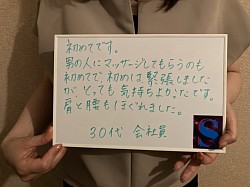 初めてです。
男の人にマッサージしてもらうのも
初めてで、初めは緊張しました
が、とっても気持ちよかったです。
肩と腰もほぐれました。
30代 会社員
S